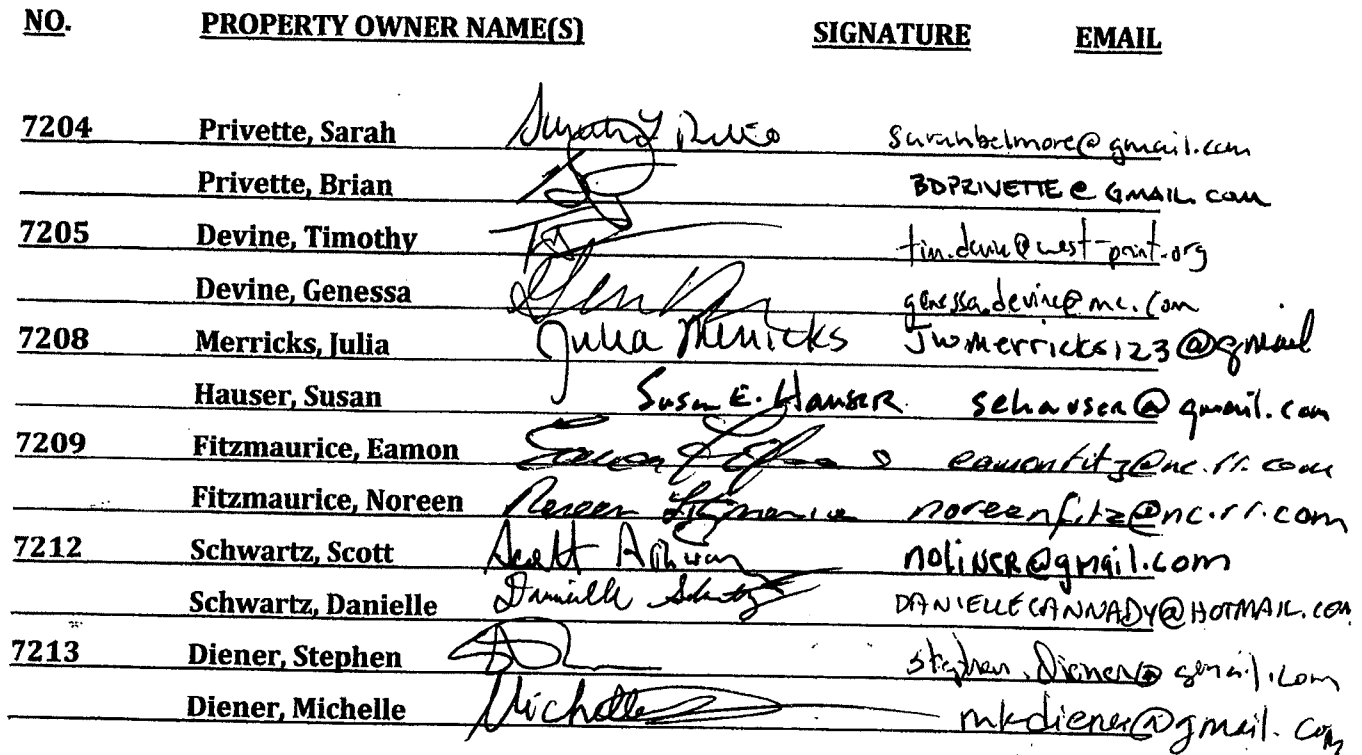 NO. PROPERTY OWNER NAME(S) SIGNATURE EMAIL
7204 Privette, Sarah sarahbelmore@gmail.com
Privette, Brian BDPRIVETTE@GMAIL.com
7205 Devine, Timothy tim.devine@west-point.org
Devine, Genessa genessa.devine@me.com
7208 Merricks, Julia Julia Merricks Jwmerricks123@gmail
Hauser, Susan Susan E. Hauser sehauser@gmail.com
7209 Fitzmaurice, Eamon eamonfitz@nc.rr.com
Fitzmaurice, Noreen Noreen Fitzmaurice noreenfitz@nc.rr.com
7212 Schwartz, Scott Scott noliner@gmail.com
Schwartz, Danielle Danielle Schwartz DANIELLECANNADY@HOTMAIL.COM
7213 Diener, Stephen stephen.diener@gmail.com
Diener, Michelle Michelle mkdiener@gmail.com